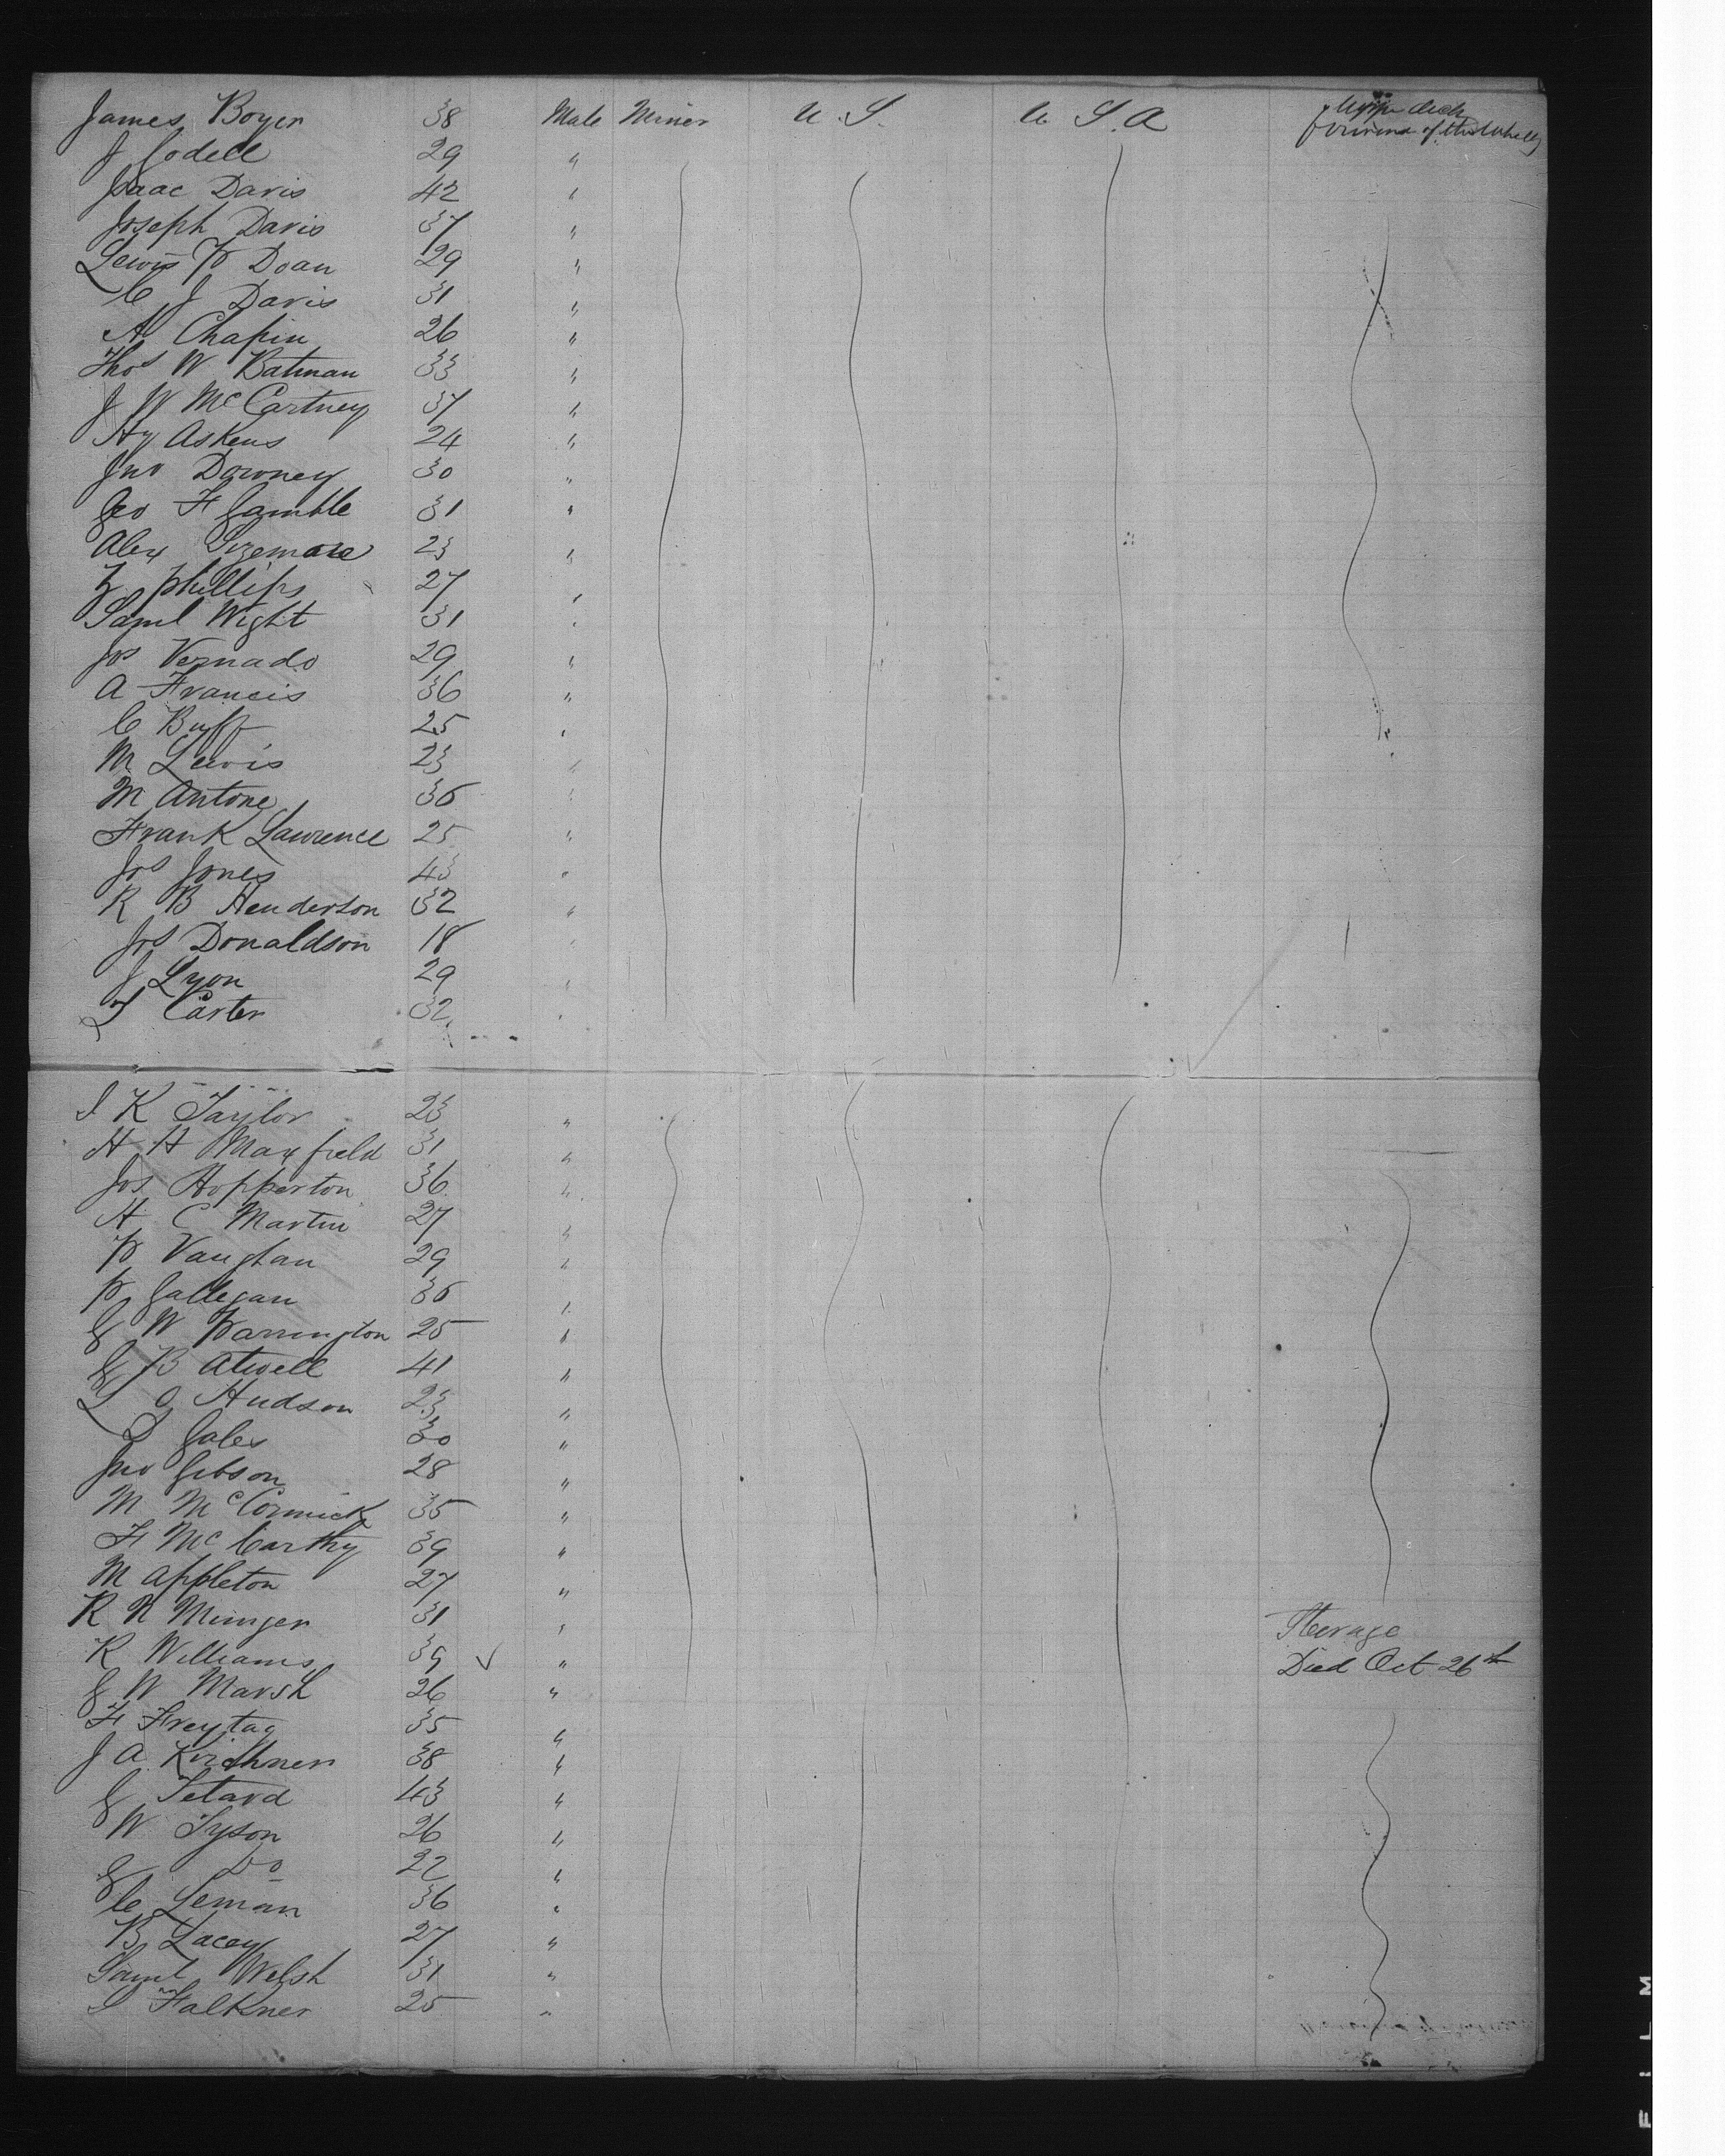 James Boyer 38 Male Miner U. S. U S. A Upper deck forward of the Wheel
J Godell 29 "
Isaac Davis 42 "
Joseph Davis 37 "
Lewis P Doan 29 "
C J Davis 31 "
A Chapin 26 "
Thos W Batman 33 "
J W McCartney 37 "
Hy Askens 24 "
Jno Downey 30 "
Geo F Gamble 31 "
Alex Sizemore 23 "
Z Phillips 27 "
Saml Wight 31 "
Jos Vernado 29 "
A Francis 36 "
C Buff 25 "
M Lewis 23 "
M Antone 36 "
Frank Lawrence 25 "
Jos Jones 43 "
R B Henderson 32 "
Jos Donaldson 18 "
J Lyon 29 "
Carter 32 "
I K Taylor 23 "
H H Maxfield 31 "
Jos Hopperton 36 "
H C Martin 27 "
P Vaughan 29 "
P Gallegan 36 "
G W Warrington 25 "
G B Atwell 41 "
L O Hudson 23 "
D Gales 30 "
Jno Gibson 28 "
M McCormick 35 "
F McCarthy 39 "
M Appleton 27 "
R N Munger 31 " Steerage
R Williams 39 " Died Oct 26th
G W Marsh 26 "
F Freytag 35 "
J A Kirchner 38 "
G Tetard 43 "
W Tyson 26 "
G Do 22 "
C Leman 36 "
B Lacey 27 "
Saml Welsh 31 "
I Falkner 25 "